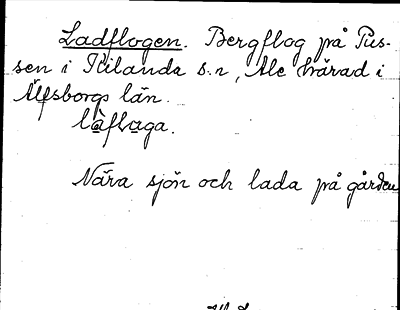 Ladflogen. Bergflog på Pus-
sen i Kilanda s:n, Ale härad i
Älfsborgs län.
låflaga.
Nära sjön och lada på gården